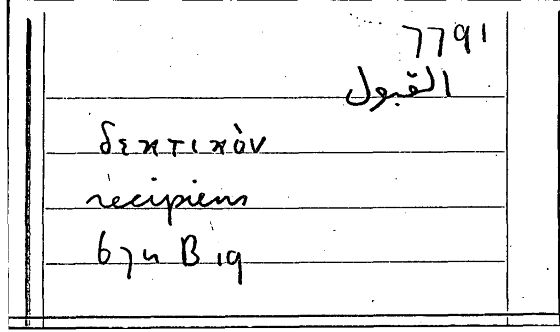 7791
القبول
δεκτικὸν
recipiens
674 B 19